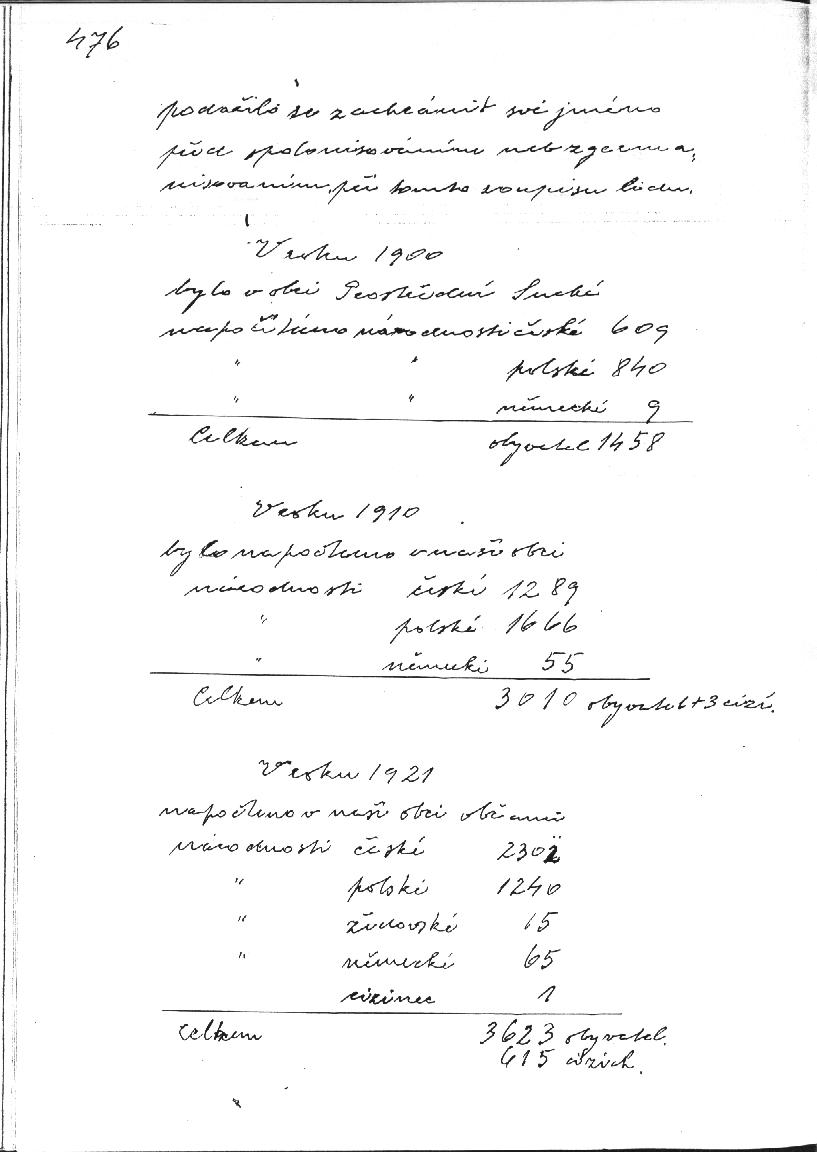 476
podařilo se zachránit své jméno
před spolonisováním neb zgerma,
nisovaním, při tomto soupisu lidu.
V roku 1900
bylo v obci Prostřední Suché
napočítáno národnosti české 609
" " polské 840
" " německé 9
Celkem obyvatel 1458
V roku 1910
bylo napočteno v naší obci
národnosti české 1289
" polské 1666
" německé 55
Celkem 3010 obyvatel + 3 cizí.
V roku 1921
napočteno v naší obci občanů
národnosti české 2302
" polské 1240
" židovské 15
" německé 65
cizinec 1
Celkem 3623 obyvatel.
615 cizích.